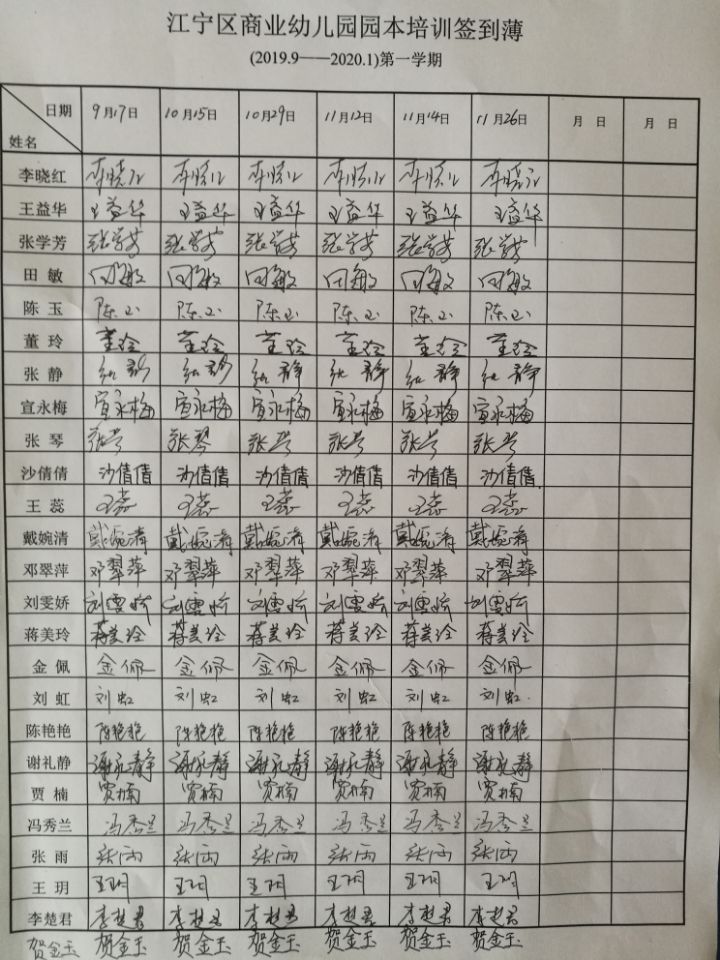 江宁区商业幼儿园园本培训签到薄
(2019.9——2020.1)第一学期
日期 9月17日 10月15日 10月29日 11月12日 11月14日 11月26日 月 日 月 日
姓名
李晓红 李晓红 李晓红 李晓红 李晓红 李晓红 李晓红
王益华 王益华 王益华 王益华 王益华 王益华 王益华
张学芳 张学芳 张学芳 张学芳 张学芳 张学芳 张学芳
田敏 田敏 田敏 田敏 田敏 田敏 田敏
陈玉 陈玉 陈玉 陈玉 陈玉 陈玉 陈玉
董玲 董玲 董玲 董玲 董玲 董玲 董玲
张静 张静 张静 张静 张静 张静 张静
宣永梅 宣永梅 宣永梅 宣永梅 宣永梅 宣永梅 宣永梅
张琴 张琴 张琴 张琴 张琴 张琴 张琴
沙倩倩 沙倩倩 沙倩倩 沙倩倩 沙倩倩 沙倩倩 沙倩倩
王蕊 王蕊 王蕊 王蕊 王蕊 王蕊 王蕊
戴婉清 戴婉清 戴婉清 戴婉清 戴婉清 戴婉清 戴婉清
邓翠萍 邓翠萍 邓翠萍 邓翠萍 邓翠萍 邓翠萍 邓翠萍
刘雯娇 刘雯娇 刘雯娇 刘雯娇 刘雯娇 刘雯娇 刘雯娇
蒋美玲 蒋美玲 蒋美玲 蒋美玲 蒋美玲 蒋美玲 蒋美玲
金佩 金佩 金佩 金佩 金佩 金佩 金佩
刘虹 刘虹 刘虹 刘虹 刘虹 刘虹 刘虹
陈艳艳 陈艳艳 陈艳艳 陈艳艳 陈艳艳 陈艳艳 陈艳艳
谢礼静 谢礼静 谢礼静 谢礼静 谢礼静 谢礼静 谢礼静
贾楠 贾楠 贾楠 贾楠 贾楠 贾楠 贾楠
冯秀兰 冯秀兰 冯秀兰 冯秀兰 冯秀兰 冯秀兰 冯秀兰
张雨 张雨 张雨 张雨 张雨 张雨 张雨
王玥 王玥 王玥 王玥 王玥 王玥 王玥
李楚君 李楚君 李楚君 李楚君 李楚君 李楚君 李楚君
贺金玉 贺金玉 贺金玉 贺金玉 贺金玉 贺金玉 贺金玉